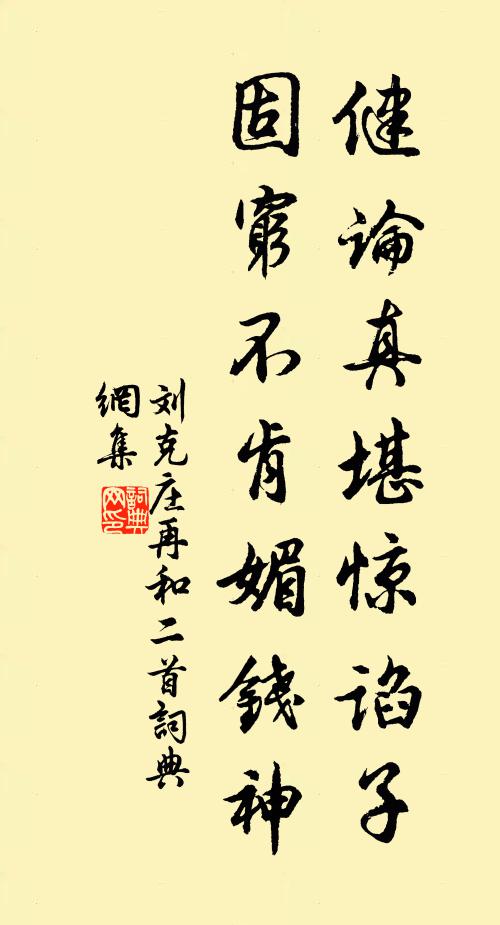 健論真堪惊谄子
固窮不肯媚錢神
刘克庄再和二首詞典
網集
詞典网印